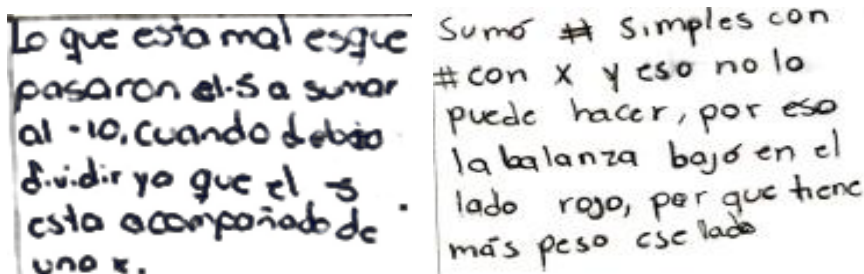 Lo que esta mal esque
pasaron el -5 a sumar
al -10, cuando debia
dividir ya que el -5
esta acompañado de
una x.
Sumó # simples con
# con x y eso no lo
puede hacer, por eso
la balanza bajó en el
lado rojo, por que tiene
más peso ese lado